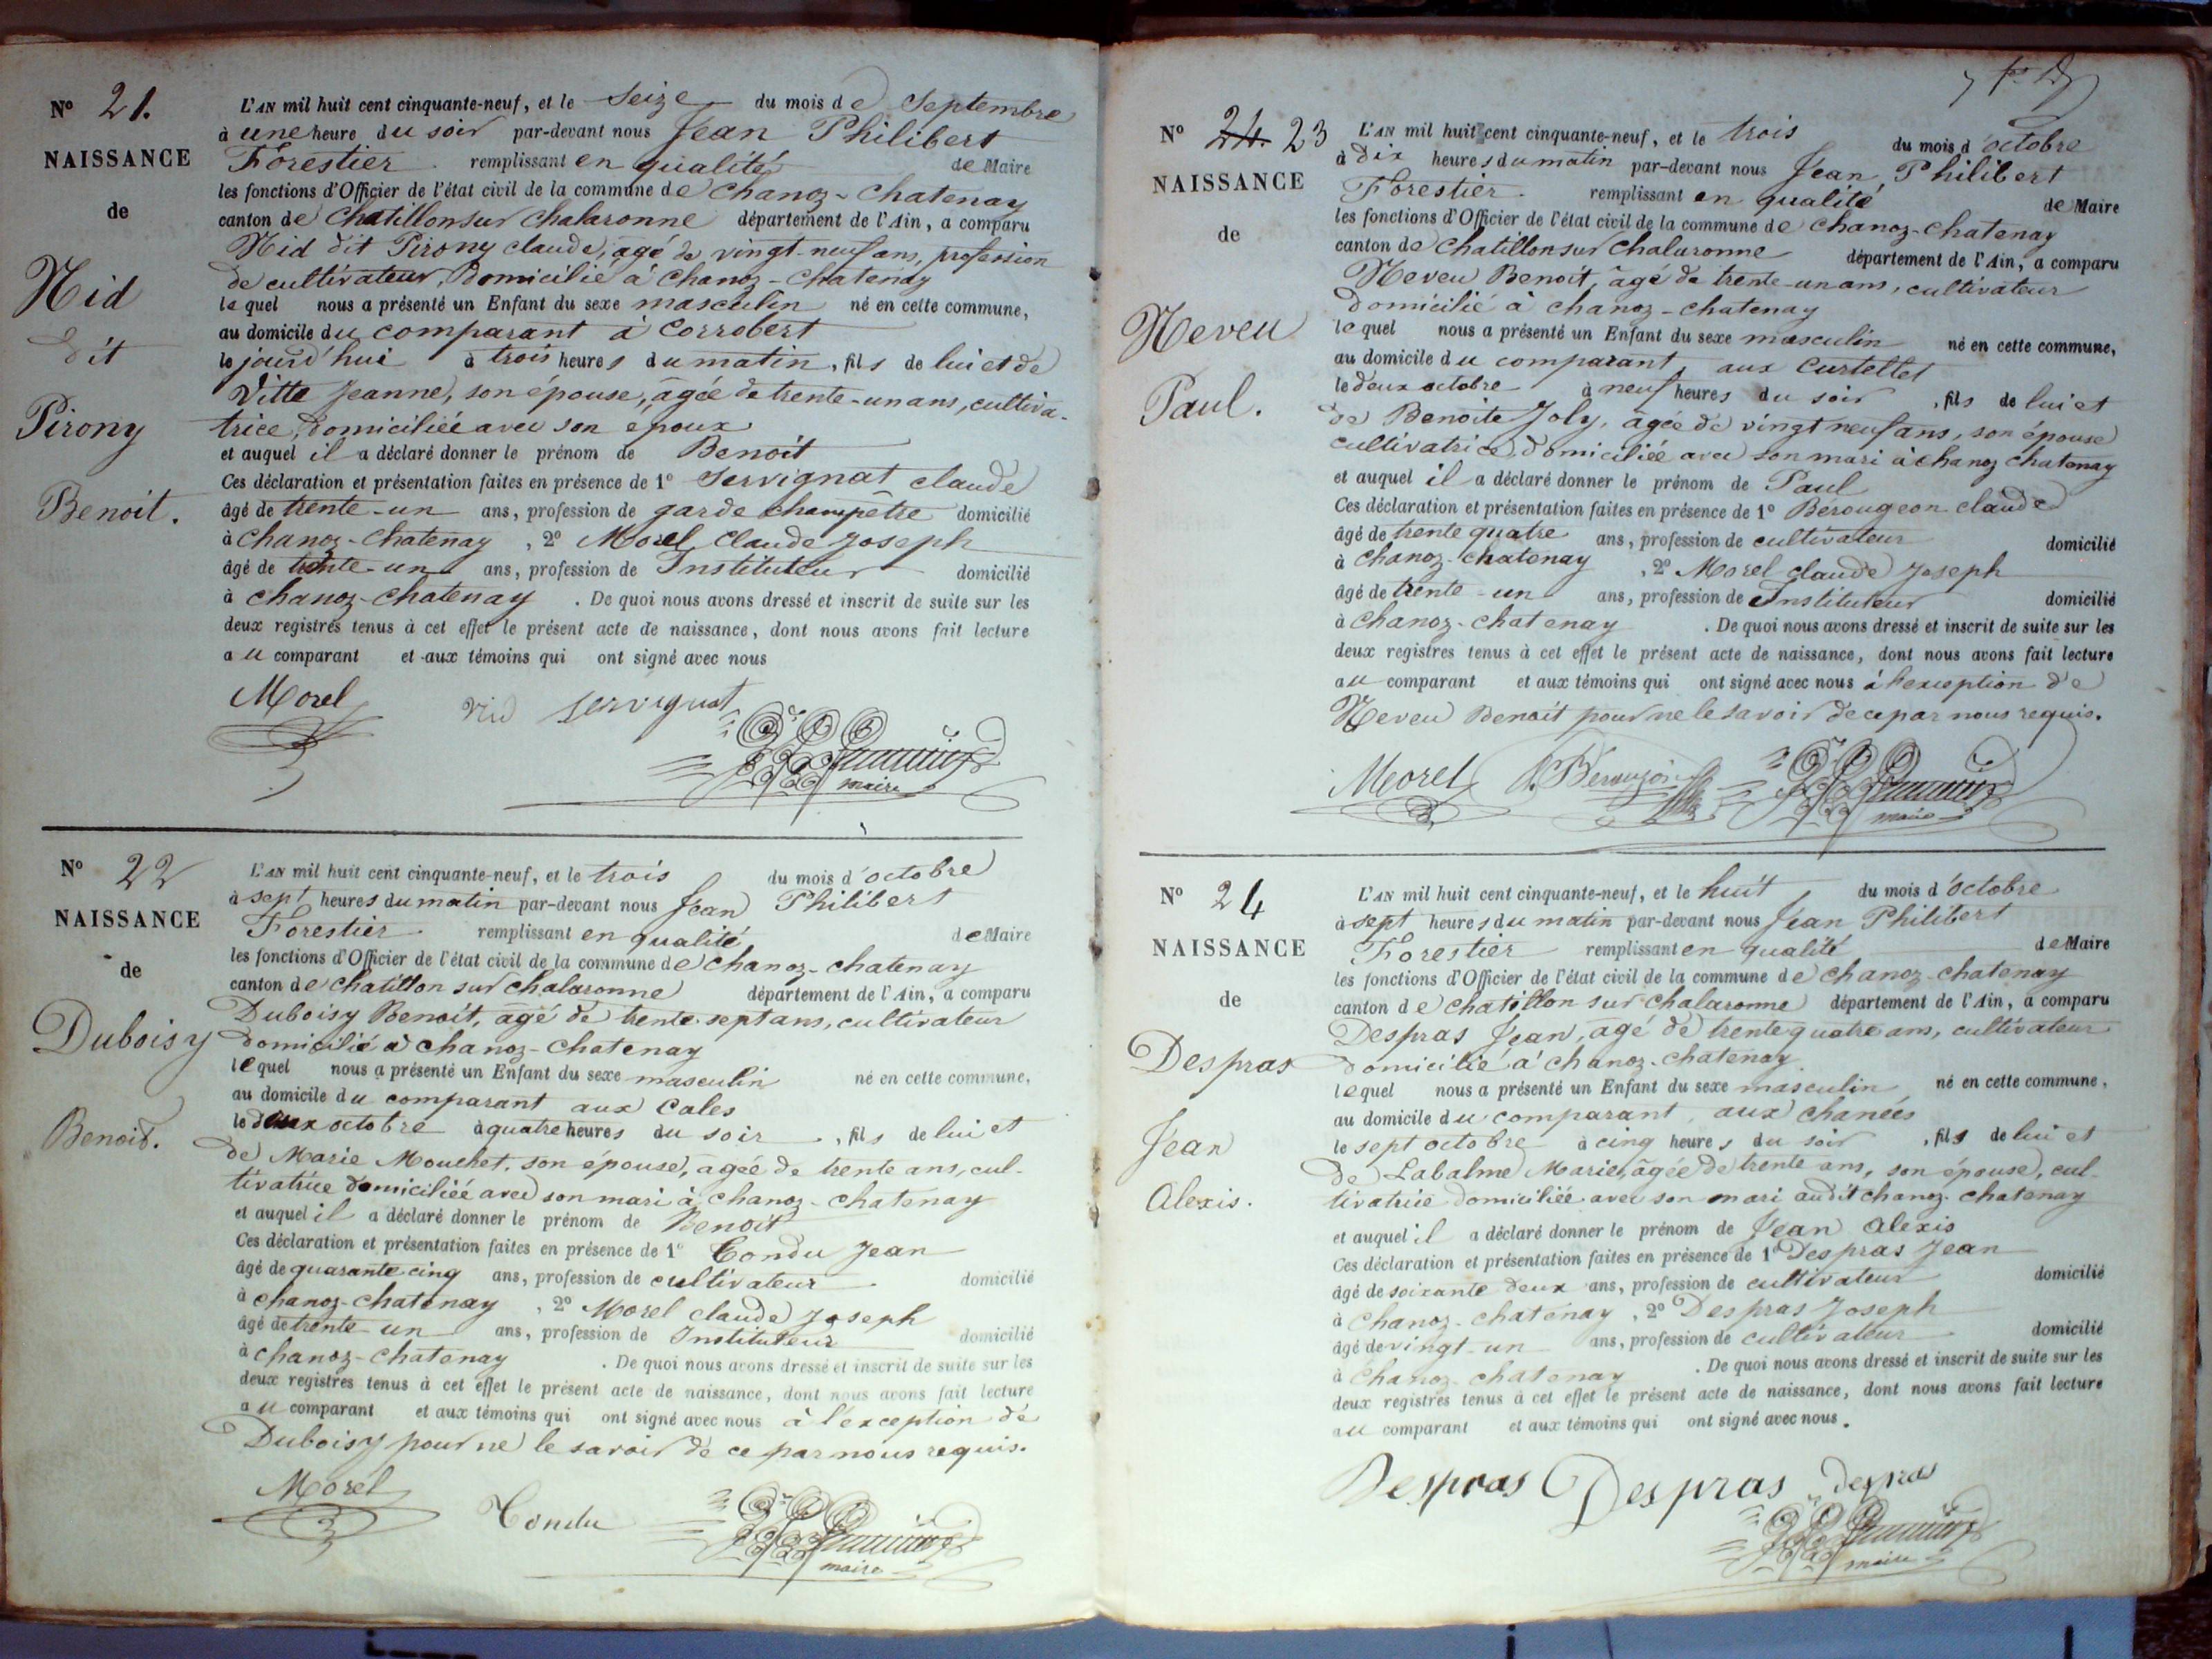 N° 21.
NAISSANCE
de
Nid
dit
Pirony
Benoit.
L'AN mil huit cent cinquante-neuf, et le seize du mois de Septembre
à une heure du soir par-devant nous Jean Philibert
Forestier remplissant en qualité de Maire
les fonctions d'Officier de l'état civil de la commune de Chanoz-Chatenay
canton de Chatillon sur Chalaronne département de l'Ain, a comparu
Nid dit Pirony claude, agé de vingt-neuf ans, profession
de cultivateur, Domicilié à Chanoz-Chatenay
lequel nous a présenté un Enfant du sexe masculin né en cette commune,
au domicile du comparant à Corrobert
le jourd'hui à trois heures du matin, fils de lui et de
Vitte Jeanne, son épouse, âgée de trente-un ans, cultiva-
trice, domiciliée avec son epoux
et auquel il a déclaré donner le prénom de Benoit
Ces déclaration et présentation faites en présence de 1° Servignat claude
âgé de trente-un ans, profession de garde champêtre domicilié
à Chanoz-Chatenay, 2° Morel Claude Joseph
âgé de trente-un ans, profession de Instituteur domicilié
à Chanoz-Chatenay. De quoi nous avons dressé et inscrit de suite sur les
deux registres tenus à cet effet le présent acte de naissance, dont nous avons fait lecture
au comparant et aux témoins qui ont signé avec nous
Morel Nid servignat
maire
N° 22
NAISSANCE
de
Duboisy
Benoit.
L'AN mil huit cent cinquante-neuf, et le trois du mois d'octobre
à sept heures du matin par-devant nous Jean Philibert
Forestier remplissant en qualité de Maire
les fonctions d'Officier de l'état civil de la commune de Chanoz-Chatenay
canton de Chatillon sur Chalaronne département de l'Ain, a comparu
Duboisy Benoit, âgé de trente-sept ans, cultivateur
domicilié à Chanoz-Chatenay
lequel nous a présenté un Enfant du sexe masculin né en cette commune,
au domicile du comparant aux Cales
le deux octobre à quatre heures du soir, fils de lui et
de Marie Mouchet, son épouse, âgée de trente ans, cul-
tivatrice domiciliée avec son mari à Chanoz-Chatenay
et auquel il a déclaré donner le prénom de Benoit
Ces déclaration et présentation faites en présence de 1° Condu Jean
âgé de quarante cinq ans, profession de cultivateur domicilié
à Chanoz-Chatenay, 2° Morel claude Joseph
âgé de trente-un ans, profession de Instituteur domicilié
à Chanoz-Chatenay. De quoi nous avons dressé et inscrit de suite sur les
deux registres tenus à cet effet le présent acte de naissance, dont nous avons fait lecture
au comparant et aux témoins qui ont signé avec nous à l'exception de
Duboisy pour ne le savoir de ce par nous requis.
Morel Condu
maire
N° 24 23
NAISSANCE
de
Neveu
Paul.
L'AN mil huit cent cinquante-neuf, et le trois du mois d'octobre
à dix heures du matin par-devant nous Jean Philibert
Forestier remplissant en qualité de Maire
les fonctions d'Officier de l'état civil de la commune de Chanoz-Chatenay
canton de Chatillon sur Chalaronne département de l'Ain, a comparu
Neveu Benoit, âgé de trente-un ans, cultivateur
domicilié à Chanoz-Chatenay
lequel nous a présenté un Enfant du sexe masculin né en cette commune,
au domicile du comparant, aux Curtellet
le deux octobre à neuf heures du soir, fils de lui et
de Benoite Joly, âgée de vingt neuf ans, son épouse
cultivatrice domiciliée avec son mari à Chanoz Chatenay
et auquel il a déclaré donner le prénom de Paul
Ces déclaration et présentation faites en présence de 1° Berougeon claude
âgé de trente quatre ans, profession de cultivateur domicilié
à Chanoz-Chatenay, 2° Morel claude Joseph
âgé de trente-un ans, profession de Instituteur domicilié
à Chanoz-Chatenay. De quoi nous avons dressé et inscrit de suite sur les
deux registres tenus à cet effet le présent acte de naissance, dont nous avons fait lecture
au comparant et aux témoins qui ont signé avec nous à l'exception de
Neveu Benoit pour ne le savoir de ce par nous requis.
Morel
maire
N° 24
NAISSANCE
de
Despras
Jean
Alexis.
L'AN mil huit cent cinquante-neuf, et le huit du mois d'octobre
à sept heures du matin par-devant nous Jean Philibert
Forestier remplissant en qualité de Maire
les fonctions d'Officier de l'état civil de la commune de Chanoz-Chatenay
canton de Chatillon sur Chalaronne département de l'Ain, a comparu
Despras Jean, agé de trente quatre ans, cultivateur
domicilié à Chanoz-Chatenay
lequel nous a présenté un Enfant du sexe masculin né en cette commune,
au domicile du comparant, aux Chanées
le sept octobre à cinq heures du soir, fils de lui et
de Labalme Marie, âgée de trente ans, son épouse, cul-
tivatrice domiciliée avec son mari audit Chanoz-Chatenay
et auquel il a déclaré donner le prénom de Jean Alexis
Ces déclaration et présentation faites en présence de 1° Despras Jean
âgé de soixante deux ans, profession de cultivateur domicilié
à Chanoz-Chatenay, 2° Despras Joseph
âgé de vingt-un ans, profession de cultivateur domicilié
à Chanoz-Chatenay. De quoi nous avons dressé et inscrit de suite sur les
deux registres tenus à cet effet le présent acte de naissance, dont nous avons fait lecture
au comparant et aux témoins qui ont signé avec nous.
Despras Despras despras
maire